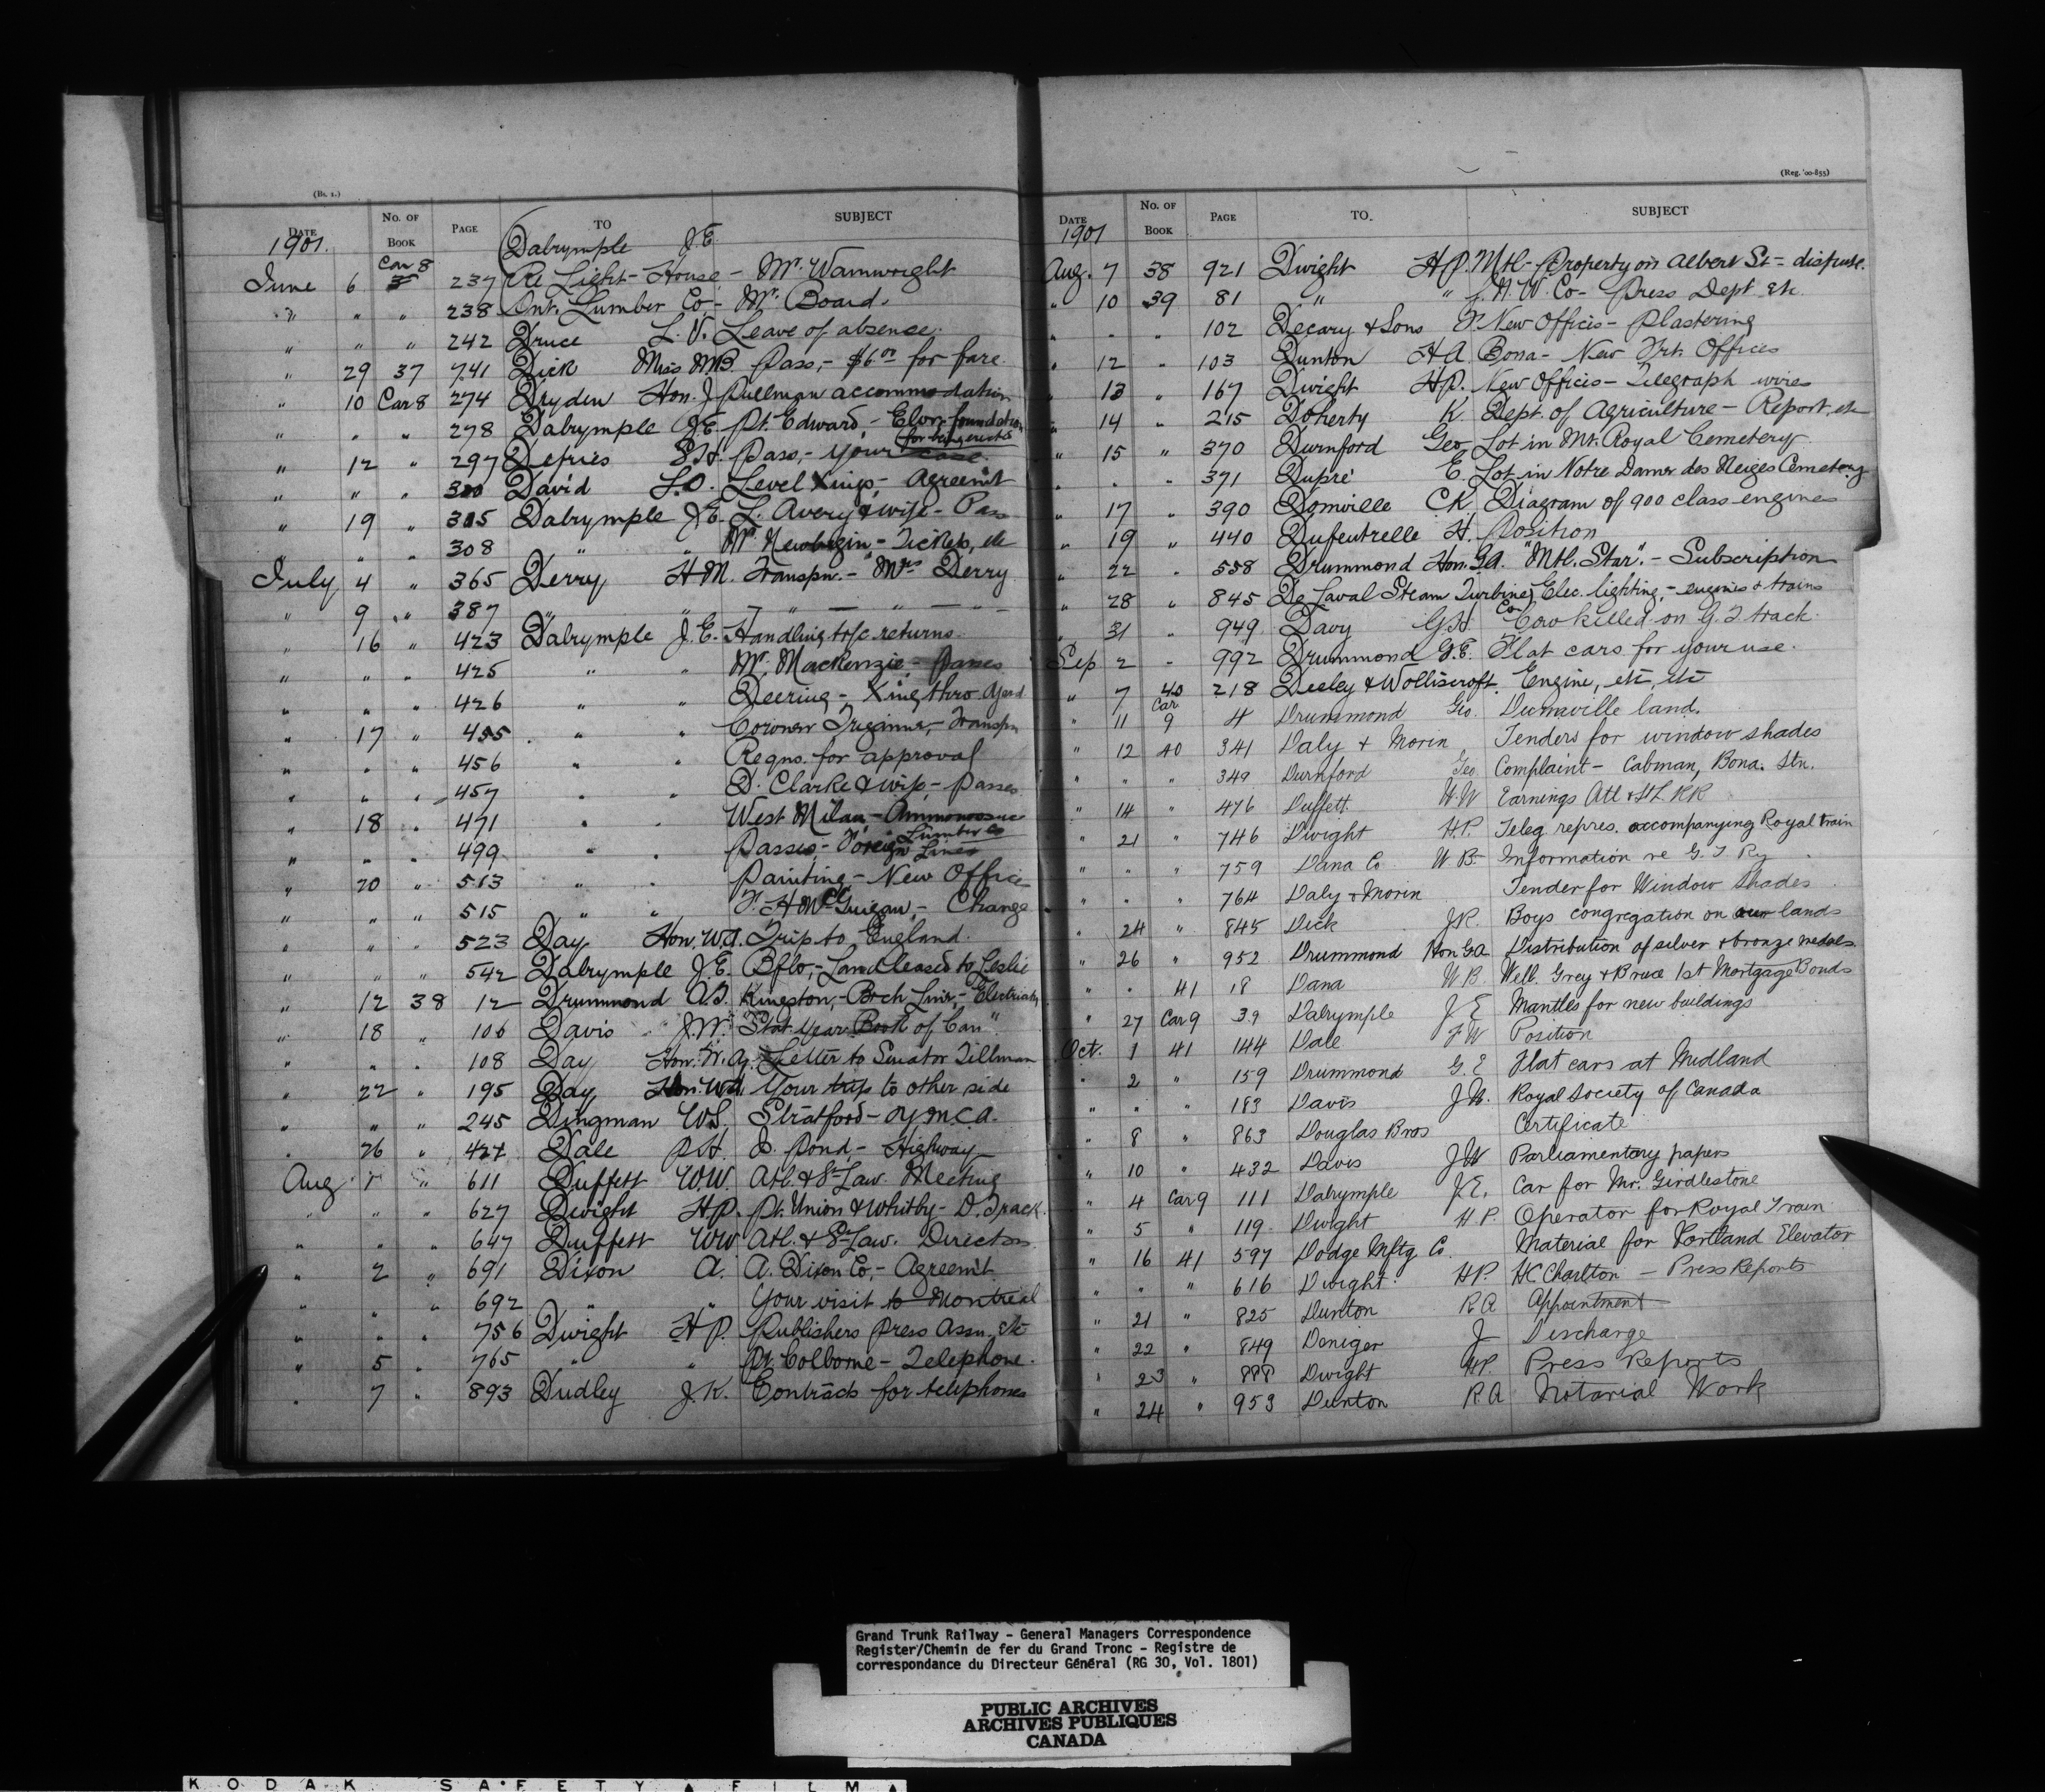 (Bt. 1.)
DATE No. OF BOOK PAGE TO SUBJECT
1901. Dalrymple J.E.
June 6 Car 8 237 Re Light-House - Mr. Wainwright
" " " 238 Ont. Lumber Co - Mr. Board.
" " " 242 Druce L.V. Leave of absence.
" 29 37 741 Dick Miss MB. Pass, - $6.00 for fare
" 10 Car 8 274 Dryden Hon. J. Pullman accommodation
" " " 278 Dalrymple J.E. Pt. Edward, - Elvr. foundation
" 12 " 297 Defries S.H. Pass, - your case. (for being erected
" " " 300 David L.O. Level Xings - Agreem't
" 19 " 305 Dalrymple J.E. L. Avery & wife - Pass
" " " 308 " " Mr. Newbegin - Tickets, etc
July 4 " 365 Derry H M. Transpn. - Mrs Derry
" 9 " 387 " " " — " — —
" 16 " 423 Dalrymple J.E. Handling tfc returns.
" " " 425 " " Mr. Mackenzie - Passes
" " " 426 " " Deering - Xing thro yard
" 17 " 455 " " Coroner - Transpn
" " " 456 " " Reqns. for approval
" " " 457 " " D. Clarke & wife - Passes
" 18 " 471 " " West Milan - Ammonoosuc
" " " 499 " " Passes - Foreign Lines Lumber Co
" 20 " 513 " " Painting - New Office
" " " 515 " " F. H. McGuigan, - Change
" " " 523 Day Hon. W.A. Trip to England.
" " " 542 Dalrymple J.E. Bflo, - Land leased to Leslie
" 12 38 12 Drummond A.T. Kingston, - Brch Line, - Electricity
" 18 " 106 Davis J.W. "Stat. Year Book of Can".
" " " 108 Day Hon. W.A. Letter to Senator Tillman
" 22 " 195 Day Hon. W.A. Your trip to other side
" " " 245 Dingman W.S. Stratford - Y.M.C.A.
" 26 " 427 Dale P.H. I. Pond, - Highway
Aug 1 " 611 Duffett W.W. Atl. & St Law. Meeting
" " " 627 Dwight H.P. Pt. Union & Whitby - D. Track.
" " " 647 Duffett WW Atl. & St Law. Directors
" 2 " 691 Dixon A. A. Dixon Co, - Agreem't
" " " 692 " " Your visit to Montreal
" " " 756 Dwight H P. Publishers Press Assn. etc
" 5 " 765 " " Pt. Colborne - Telephone.
" 7 " 893 Dudley J.K. Contracts for telephones
(Reg. '00-855)
DATE No. OF BOOK PAGE TO. SUBJECT
1901
Aug. 7 38 921 Dwight H.P. Mtl - Property on Albert St - dispute.
" 10 39 81 " " G.N.W. Co - Press Dept etc.
" " " 102 Decary & Sons F. New Offices - Plastering
" 12 " 103 Dunton H A Bona - New Frt. Offices
" 13 " 167 Dwight H.P. New Offices - Telegraph wires
" 14 " 215 Doherty K Dept. of Agriculture - Report, etc
" 15 " 370 Durnford Geo Lot in Mt. Royal Cemetery.
" " " 371 Dupré E. Lot in Notre Dame des Neiges Cemetery
" 17 " 390 Domville C.K. Diagram of 900 class engines
" 19 " 440 Dufeutrelle H. Position
" 22 " 558 Drummond Hon. G.A. "Mtl. Star". - Subscription
" 28 " 845 De Laval Steam Turbine Co Elec. lighting, - engines & trains
" 31 " 949 Davy G.H Cow killed on G.T track.
Sep 2 " 992 Drummond G.E. Flat cars for your use.
" 7 40 218 Deeley & Wolliscroft. Engine, etc, etc
" 11 Car 9 4 Drummond Geo. Dunnville land.
" 12 40 341 Daly & Morin Tenders for window shades
" " " 349 Durnford Geo Complaint - Cabman, Bona. Stn.
" 14 " 476 Duffett W.W Earnings Atl & St L RR
" 21 " 746 Dwight H.P. Teleg. repres. accompanying Royal train
" " " 759 Dana Co W B. Information re G.T Ry
" " " 764 Daly & Morin Tender for Window Shades
" 24 " 845 Dick J.R. Boys congregation on our lands
" 26 " 952 Drummond Hon G.A Distribution of silver & bronze medals
" " 41 18 Dana W.B. Well. Grey & Bruce 1st Mortgage Bonds
" 27 Car 9 39 Dalrymple J E Mantles for new buildings
Oct. 1 41 144 Dale F W Position
" 2 " 159 Drummond G.E Flat cars at Midland
" " " 183 Davis J.W. Royal Society of Canada
" 8 " 863 Douglas Bros Certificate
" 10 " 432 Davis J W Parliamentary papers
" 4 Car 9 111 Dalrymple J.E. Car for Mr. Girdlestone
" 5 " 119 Dwight H.P. Operator for Royal Train
" 16 41 597 Dodge Mftg. Co. Material for Portland Elevator
" " " 616 Dwight H.P. H C Charlton - Press Reports
" 21 " 825 Dunton R A Appointment
" 22 " 849 Deniger J Discharge
" 23 " 888 Dwight H.P. Press Reports
" 24 " 953 Dunton R.A Notarial Work
Grand Trunk Railway - General Managers Correspondence
Register/Chemin de fer du Grand Tronc - Registre de
correspondance du Directeur Général (RG 30, Vol. 1801)
PUBLIC ARCHIVES
ARCHIVES PUBLIQUES
CANADA
KODAK SAFETY FILM